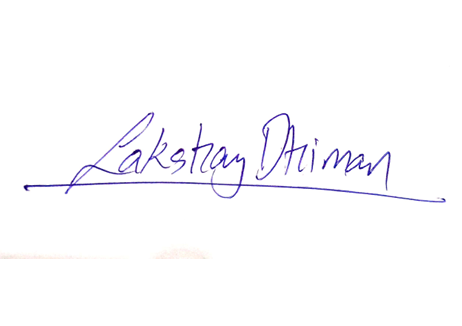 Lakshay Dhiman